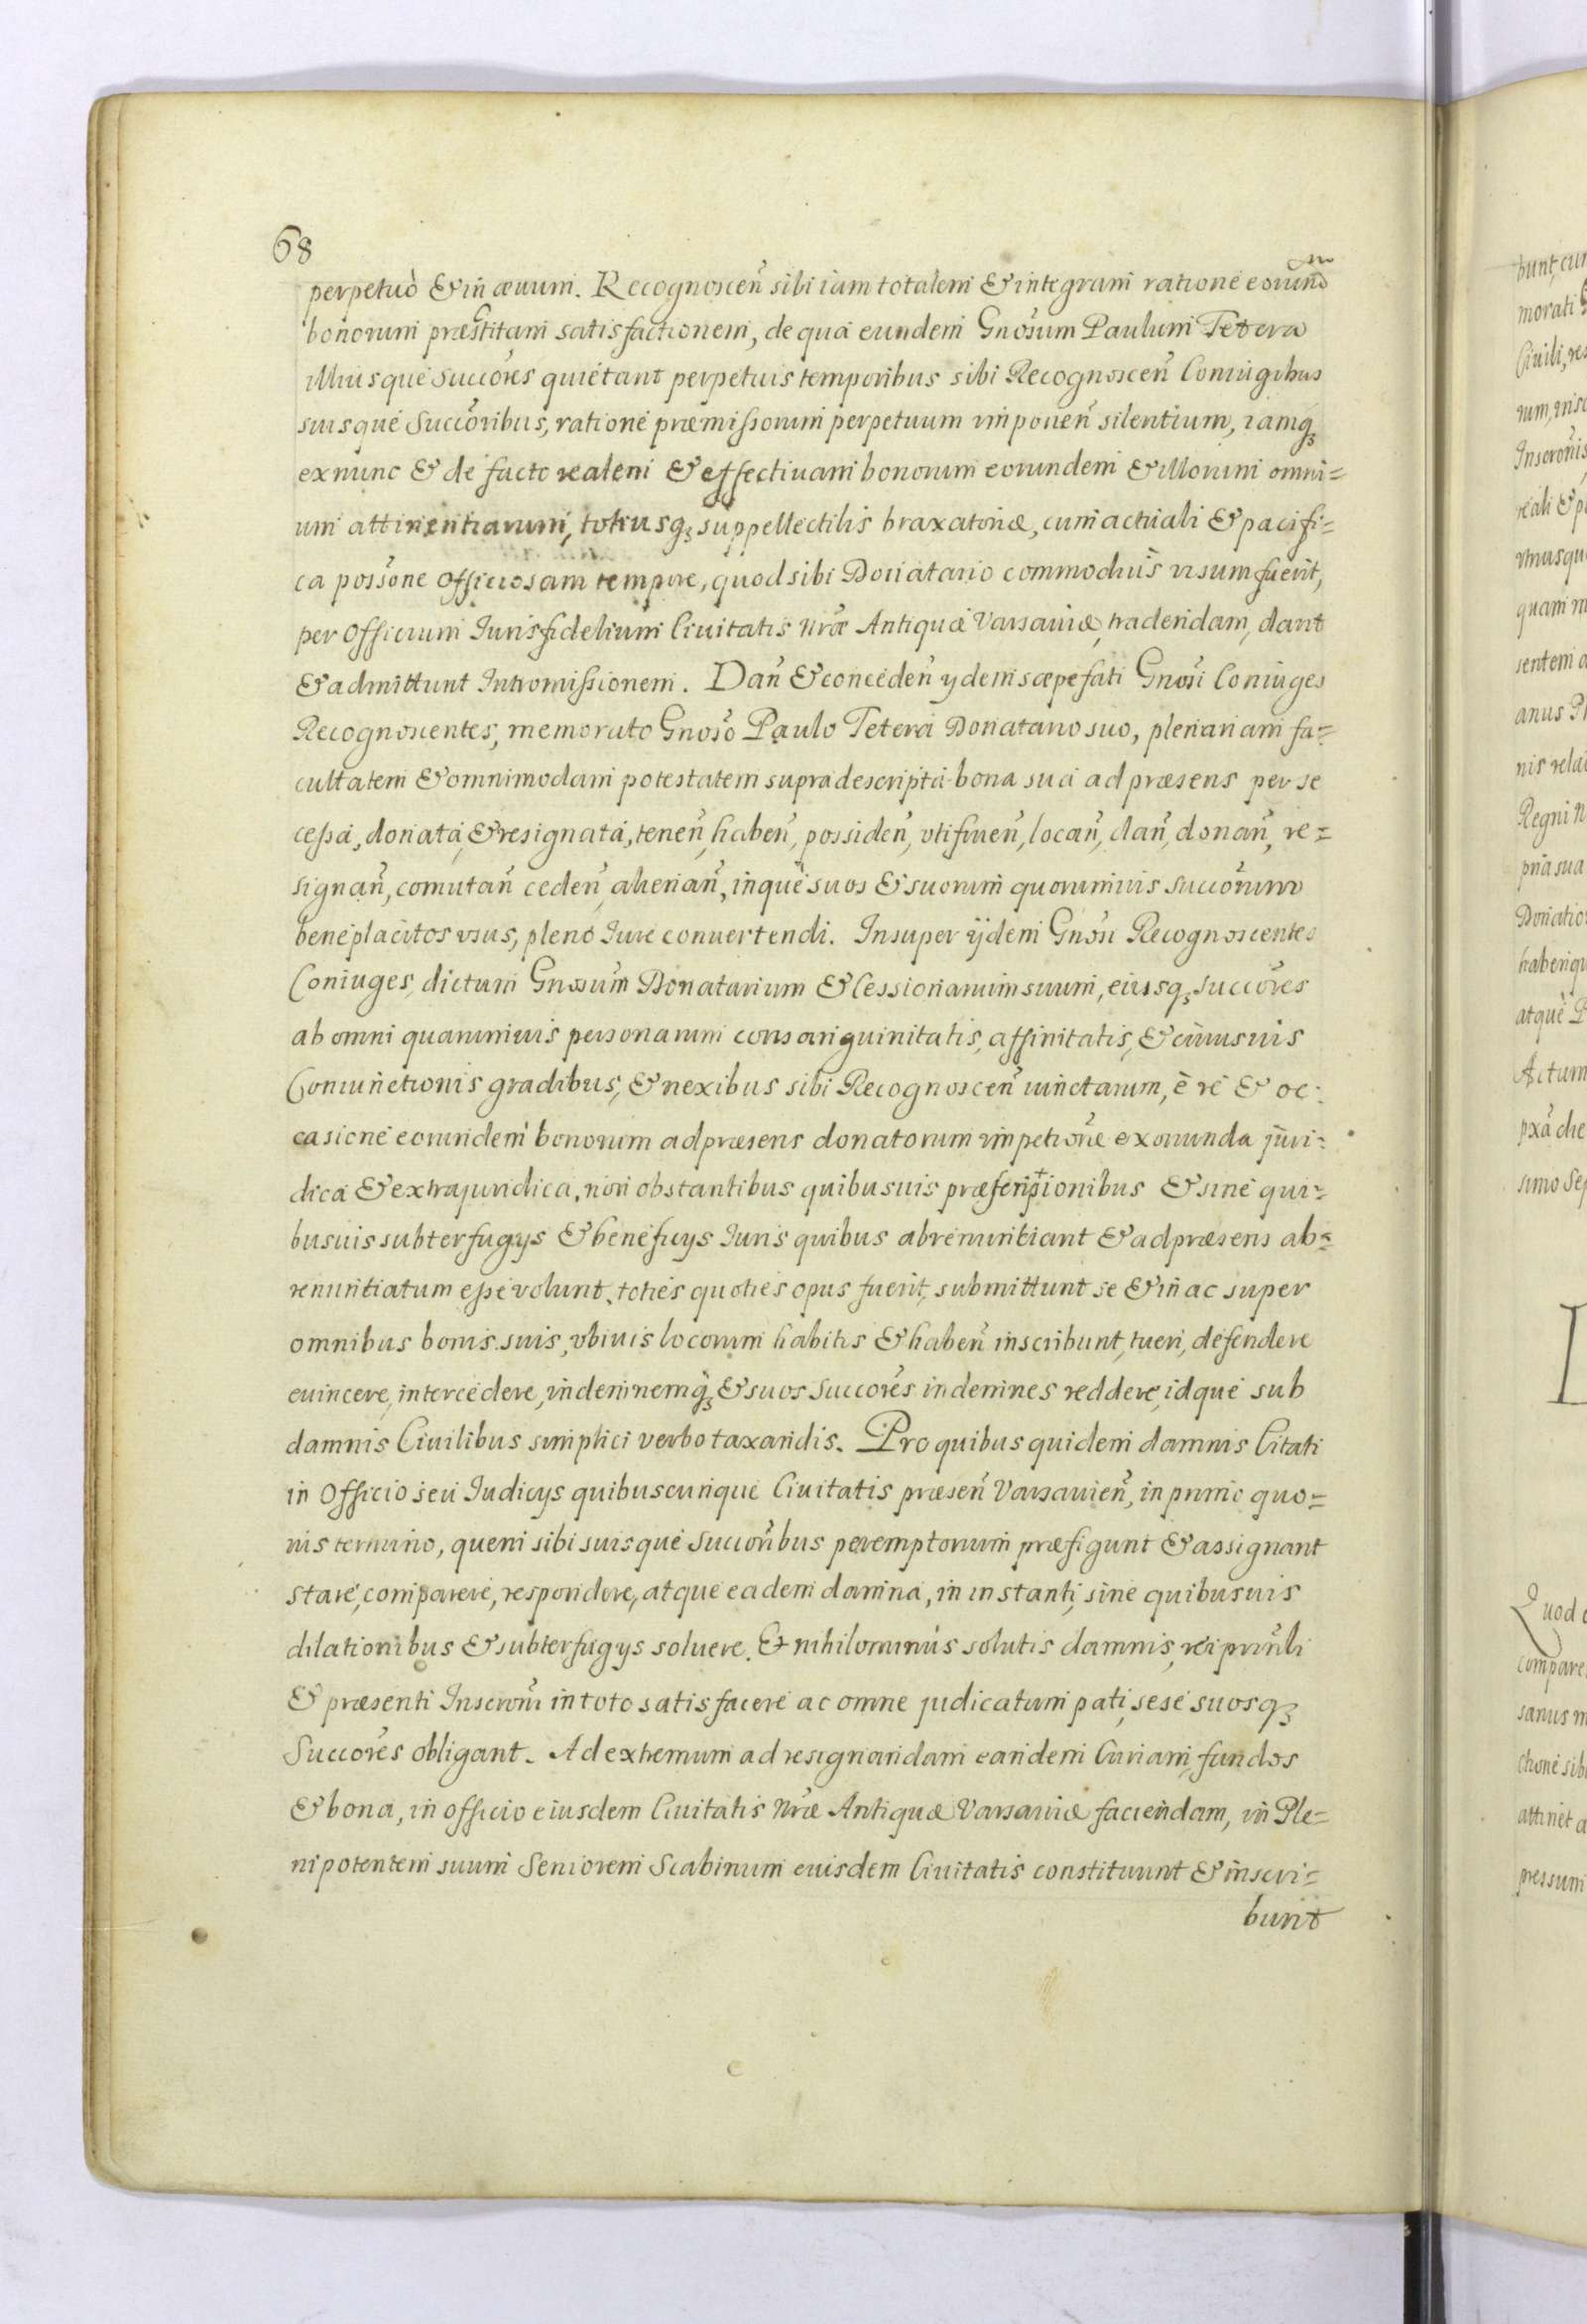 68
perpetuò & in æuum. Recognoscen̄ sibi iam totalem & integram ratione eorund͞em
bonorum præstitam satisfactionem, de qua eundem Gnōsum Paulum Tetera
illiusque Succōres quietant perpetuis temporibus sibi Recognoscen̄ Coniugibus
suisque Succōribus, ratione præmissorum perpetuum imponen̄ silentium, iamq₃
ex nunc & de facto realem & effectiuam bonorum eorundem & illorum omni=
um attinentiarum, totiusq₃ suppellectilis braxatoriæ, cum actuali & pacifi=
ca possōne officiosam tempore, quod sibi Donatario commodius visum fuerit,
per Officium Iuris fidelium Ciuitatis nrāe Antiquæ Varsauiæ, tradendam, dant
& admittunt Intromissionem. Dan̄ & conceden̄ ydem sæpefati Gnōsi Coniuges
Recognoscentes, memorato Gnōso Paulo Tetera Donatario suo, plenariam fa=
cultatem & omnimodam potestatem supradescripta bona sua ad præsens per se
cessa, donata, & resignata, tenen̄, haben̄, possiden̄, vtifruen̄, locan̄, dan̄, donan̄, re=
signan̄, comutan̄ ceden̄, alienan̄, inque suos & suorum quorumuis succōrum
beneplacitos vsus, pleno Iure conuertendi. Insuper ijdem Gnōsi Recognoscentes
Coniuges, dictum Gnōsum Donatarium & Cessionarium suum, eiusq₃ succōres
ab omni quarumuis personarum consanguinitatis, affinitatis, & cuiusuis
Coniunctionis gradibus, & nexibus sibi Recognoscen̄ iunctarum, è re & oc=
casione eorundem bonorum ad præsens donatorum impetiōne exoriunda juri=
dica & extrajuridica, non obstantibus quibusuis præscriptionibus & sine qui=
busuis subterfugys & beneficys Iuris quibus abrenuntiant & ad præsens ab=
renuntiatum esse volunt, toties quoties opus fuerit, submittunt se & in ac super
omnibus bonis suis, vbiuis locorum habitis & haben̄ inscribunt, tueri, defendere
euincere, intercedere, indemnemq₃ & suos Succōres indemnes reddere, idque sub
damnis Ciuilibus simplici verbo taxandis. Pro quibus quidem damnis Citati
in Officio seu Iudicys quibuscunque Ciuitatis præsen̄ Varsauien̄, in primo quo=
uis termino, quem sibi suisque Succōribus peremptorium præfigunt & assignant
stare, comparere, respondere, atque eadem damna, in instanti, sine quibusuis
dilationibus & subterfugys soluere. Et nihilominùs solutis damnis, rei prin̄li
& præsenti Inscrōni in toto satisfacere ac omne judicatum pati, sese suosq₃
Succōres obligant. Ad extremum ad resignandam eandem Curiam, fundos
& bona, in officio eiusdem Ciuitatis nrāe Antiquæ Varsauiæ faciendam, in Ple=
nipotentem suum Seniorem Scabinum euisdem Ciuitatis constituunt & inscri=
bunt